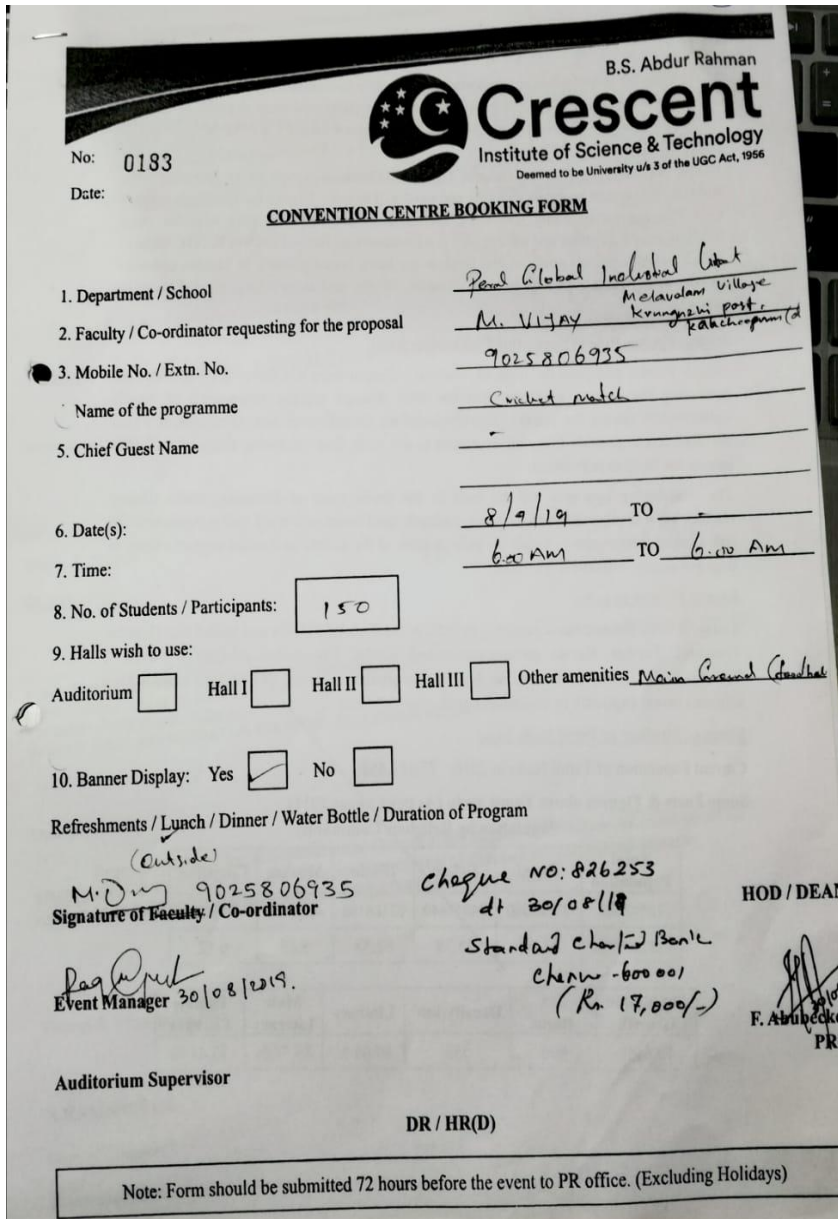 B.S. Abdur Rahman
Crescent
Institute of Science & Technology
Deemed to be University u/s 3 of the UGC Act, 1956
No: 0183
Date:
CONVENTION CENTRE BOOKING FORM
1. Department / School Global
2. Faculty / Co-ordinator requesting for the proposal M. VIJAY
Melavalam Village
post,
3. Mobile No. / Extn. No. 9025806935
Name of the programme Cricket match
5. Chief Guest Name -
6. Date(s): 8/9/19 TO -
7. Time: 6.00 AM TO 6.00 AM
8. No. of Students / Participants: 150
9. Halls wish to use:
Auditorium Hall I Hall II Hall III Other amenities Main Ground
10. Banner Display: Yes No
Refreshments / Lunch / Dinner / Water Bottle / Duration of Program
(Outside)
9025806935
Signature of Faculty / Co-ordinator
Cheque NO: 826253
dt 30/08/19
Standard Bank
-600001
(Rs. 17,000/-)
HOD / DEAN
30/08/2019.
Event Manager
F. Abubecke
PR
Auditorium Supervisor
DR / HR(D)
Note: Form should be submitted 72 hours before the event to PR office. (Excluding Holidays)